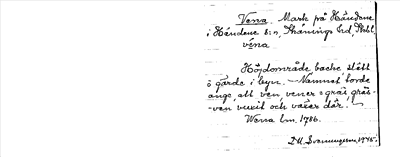 Vena. Mark på Händene
i Händene s:n, Skånings hd, Skbl.
vena
Höjdområde backe slätt
å gärde i byn. – Namnet torde
ange, att ven, vener = gräs, gräs-
ven vuxit och växer där. –
Wena lm. 1786.
D.U. Svenungsson, 1945.